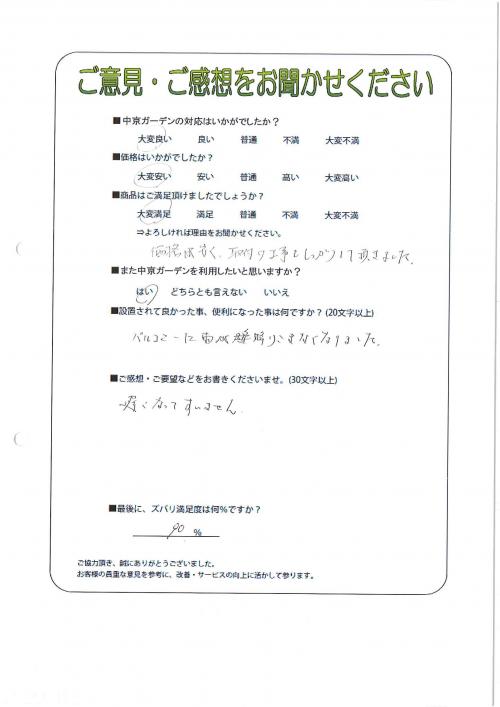 ご意見・ご感想をお聞かせください
■中京ガーデンの対応はいかがでしたか？
大変良い 良い 普通 不満 大変不満
■価格はいかがでしたか？
大変安い 安い 普通 高い 大変高い
■商品はご満足頂けましたでしょうか？
大変満足 満足 普通 不満 大変不満
⇒よろしければ理由をお聞かせください。
価格は安く、取付の工事もしっかりして頂きました。
■また中京ガーデンを利用したいと思いますか？
はい どちらとも言えない いいえ
■設置されて良かった事、便利になった事は何ですか？(20文字以上)
バルコニーに雨が降りこまなくなりました。
■ご感想・ご要望などをお書きくださいませ。(30文字以上)
遅くなってすいません
■最後に、ズバリ満足度は何％ですか？
90 %
ご協力頂き、誠にありがとうございました。
お客様の貴重な意見を参考に、改善・サービスの向上に活かして参ります。